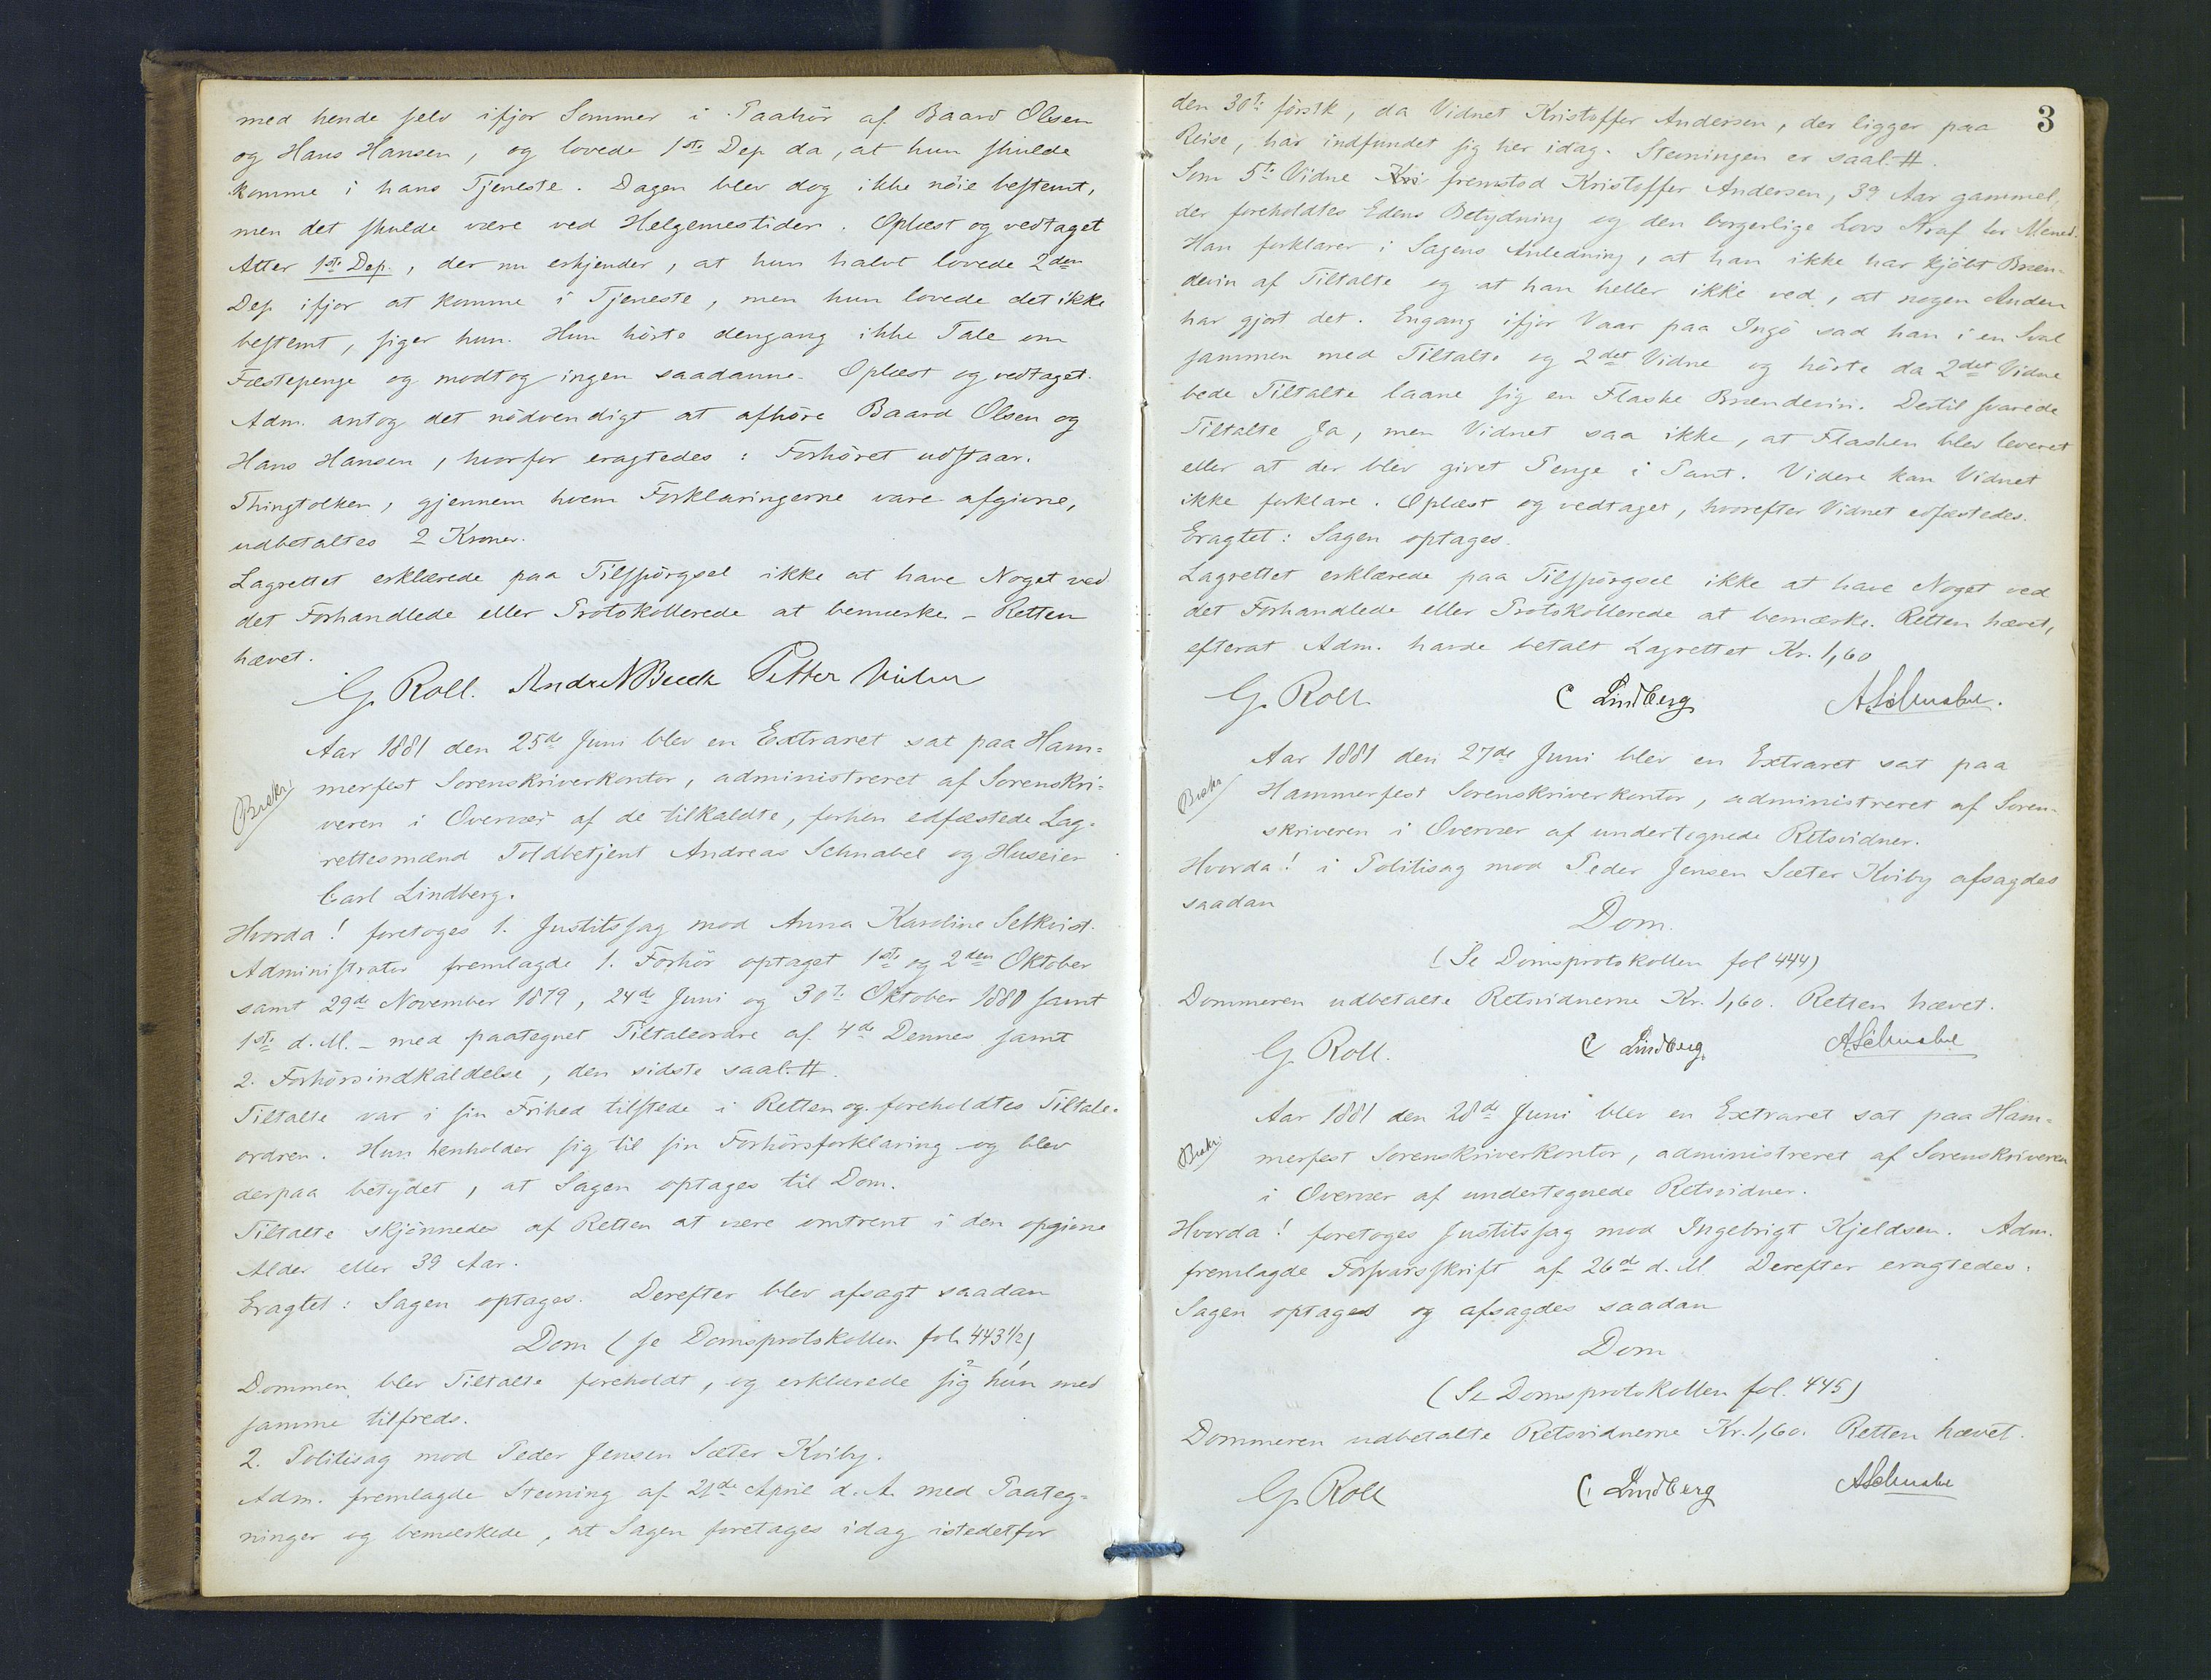 med hende selv ifjor Sommer i Paahör af Baard Olsen
og Hans Hansen, og lovede 1ste Dep. da, at hun skulde
komme i hans Tjeneste. Dagen blev dog ikke nöie bestemt,
men det skulde være ved Helgemestider. Oplæst og vedtaget
Atter 1ste Dep., der nu erkjender, at hun halvt lovede 2den
Dep ifjor at komme i Tjeneste, men hun lovede det ikke
bestemt, siger hun. Hun hörte dengang ikke Tale om
Fæstepenge og modtog ingen saadanne. Oplæst og vedtaget.
Adm. antog det nödvendigt at afhöre Baard Olsen og
Hans Hansen, hvorfor eragtedes: Forhöret udstaar.
Thingtolken, gjennem hvem Forklaringerne vare afgivne,
udbetaltes 2 Kroner.
Lagrettet erklærede paa Tilspörgsel ikke at have Noget ved
det Forhandlede eller Protokollerede at bemærke. - Retten
hævet.
G. Roll. Petter
Aar 1881 den 25de Juni blev en Extraret sat paa Ham=
merfest Sorenskriverkontor, administreret af Sorenskri=
veren i Overvær af de tilkaldte, forhen edfæstede Lag=
rettesmænd Toldbetjent Andreas Schnabel og Huseier
Carl Lindberg.
Hvorda! foretoges 1. Justitssag mod Anna Karoline Selkvist.
Administrator fremlagde 1. Forhör optaget 1ste og 2den Oktober
samt 29de November 1879, 24de Juni og 30te Oktober 1880 samt
1ste d. M. - med paategnet Tiltaleordre af 4de Dennes samt
2. Forhörsindkaldelse, den sidste saal. #.
Tiltalte var i sin Frihed tilstede i Retten og foreholdtes Tiltale=
ordren. Hun henholder sig til sin Forhörsforklaring og blev
derpaa betydet, at Sagen optages til Dom.
Tiltalte skjönnedes af Retten at være omtrent i den opgivne
Alder eller 39 Aar.
Eragtet: Sagen optages. Derefter blev afsagt saadan
Dom (se Domsprotokollen fol. 443 1/2)
Dommen blev Tiltalte foreholdt, og erklærede sig hun med
samme tilfreds.
2. Politisag mod Peder Jensen Sæter Kviby.
Adm. fremlagde Stevning af 21de April d. A. med Paateg=
ninger og bemærkede, at Sagen foretages idag istedetfor
3
den 30te förstk, da Vidnet Kristoffer Andersen, der ligger paa
Reise, har indfundet sig her idag. Stevningen er saal. #.
Som 5te Vidne Kri fremstod Kristoffer Andersen, 39 Aar gammel,
der foreholdtes Edens Betydning og den borgerlige Lovs Straf for Mened.
Han forklarer i Sagens Anledning, at han ikke har kjöbt Bræn=
devin af Tiltalte og at han heller ikke ved, at nogen Anden
har gjort det. Engang ifjor Vaar paa Ingö sad han i en Sval
sammen med Tiltalte og 2det Vidne og hörte da 2det Vidne
bede Tiltalte laane sig en Flaske Brændevin. Dertil svarede
Tiltalte Ja, men Vidnet saa ikke, at Flasken blev leveret
eller at der blev givet Penge i Pant. Videre kan Vidnet
ikke forklare. Oplæst og vedtaget, hvorefter Vidnet edfæstedes.
Eragtet: Sagen optages.
Lagrettet erklærede paa Tilspörgsel ikke at have Noget ved
det Forhandlede eller Protokollerede at bemærke. Retten hævet,
efterat Adm. havde betalt Lagrettet Kr. 1,60
G. Roll. C Lindberg A Schnabel.
Aar 1881 den 27de Juni blev en Extraret sat paa
Hammerfest Sorenskriverkontor, administreret af Soren=
skriveren i Overvær af undertegnede Retsvidner.
Hvorda! i Politisag mod Peder Jensen Sæter Kviby afsagdes
saadan
Dom.
(Se Domsprotokollen fol 444)
Dommeren udbetalte Retsvidnerne Kr. 1,60. Retten hævet.
G. Roll. C Lindberg. A Schnabel
Aar 1881 den 28de Juni blev en Extraret sat paa Ham=
merfest Sorenskriverkontor, administreret af Sorenskriveren
i Overvær af undertegnede Retsvidner.
Hvorda! foretoges Justitssag mod Ingebrigt Kjeldsen. Adm.
fremlagde Forsvarsskrift af 26de d. M. Derefter eragtedes:
Sagen optages og afsagdes saadan
Dom
(Se Domsprotokollen fol. 445)
Dommeren udbetalte Retsvidnerne Kr. 1,60. Retten hævet.
G. Roll C. Lindberg A Schnabel